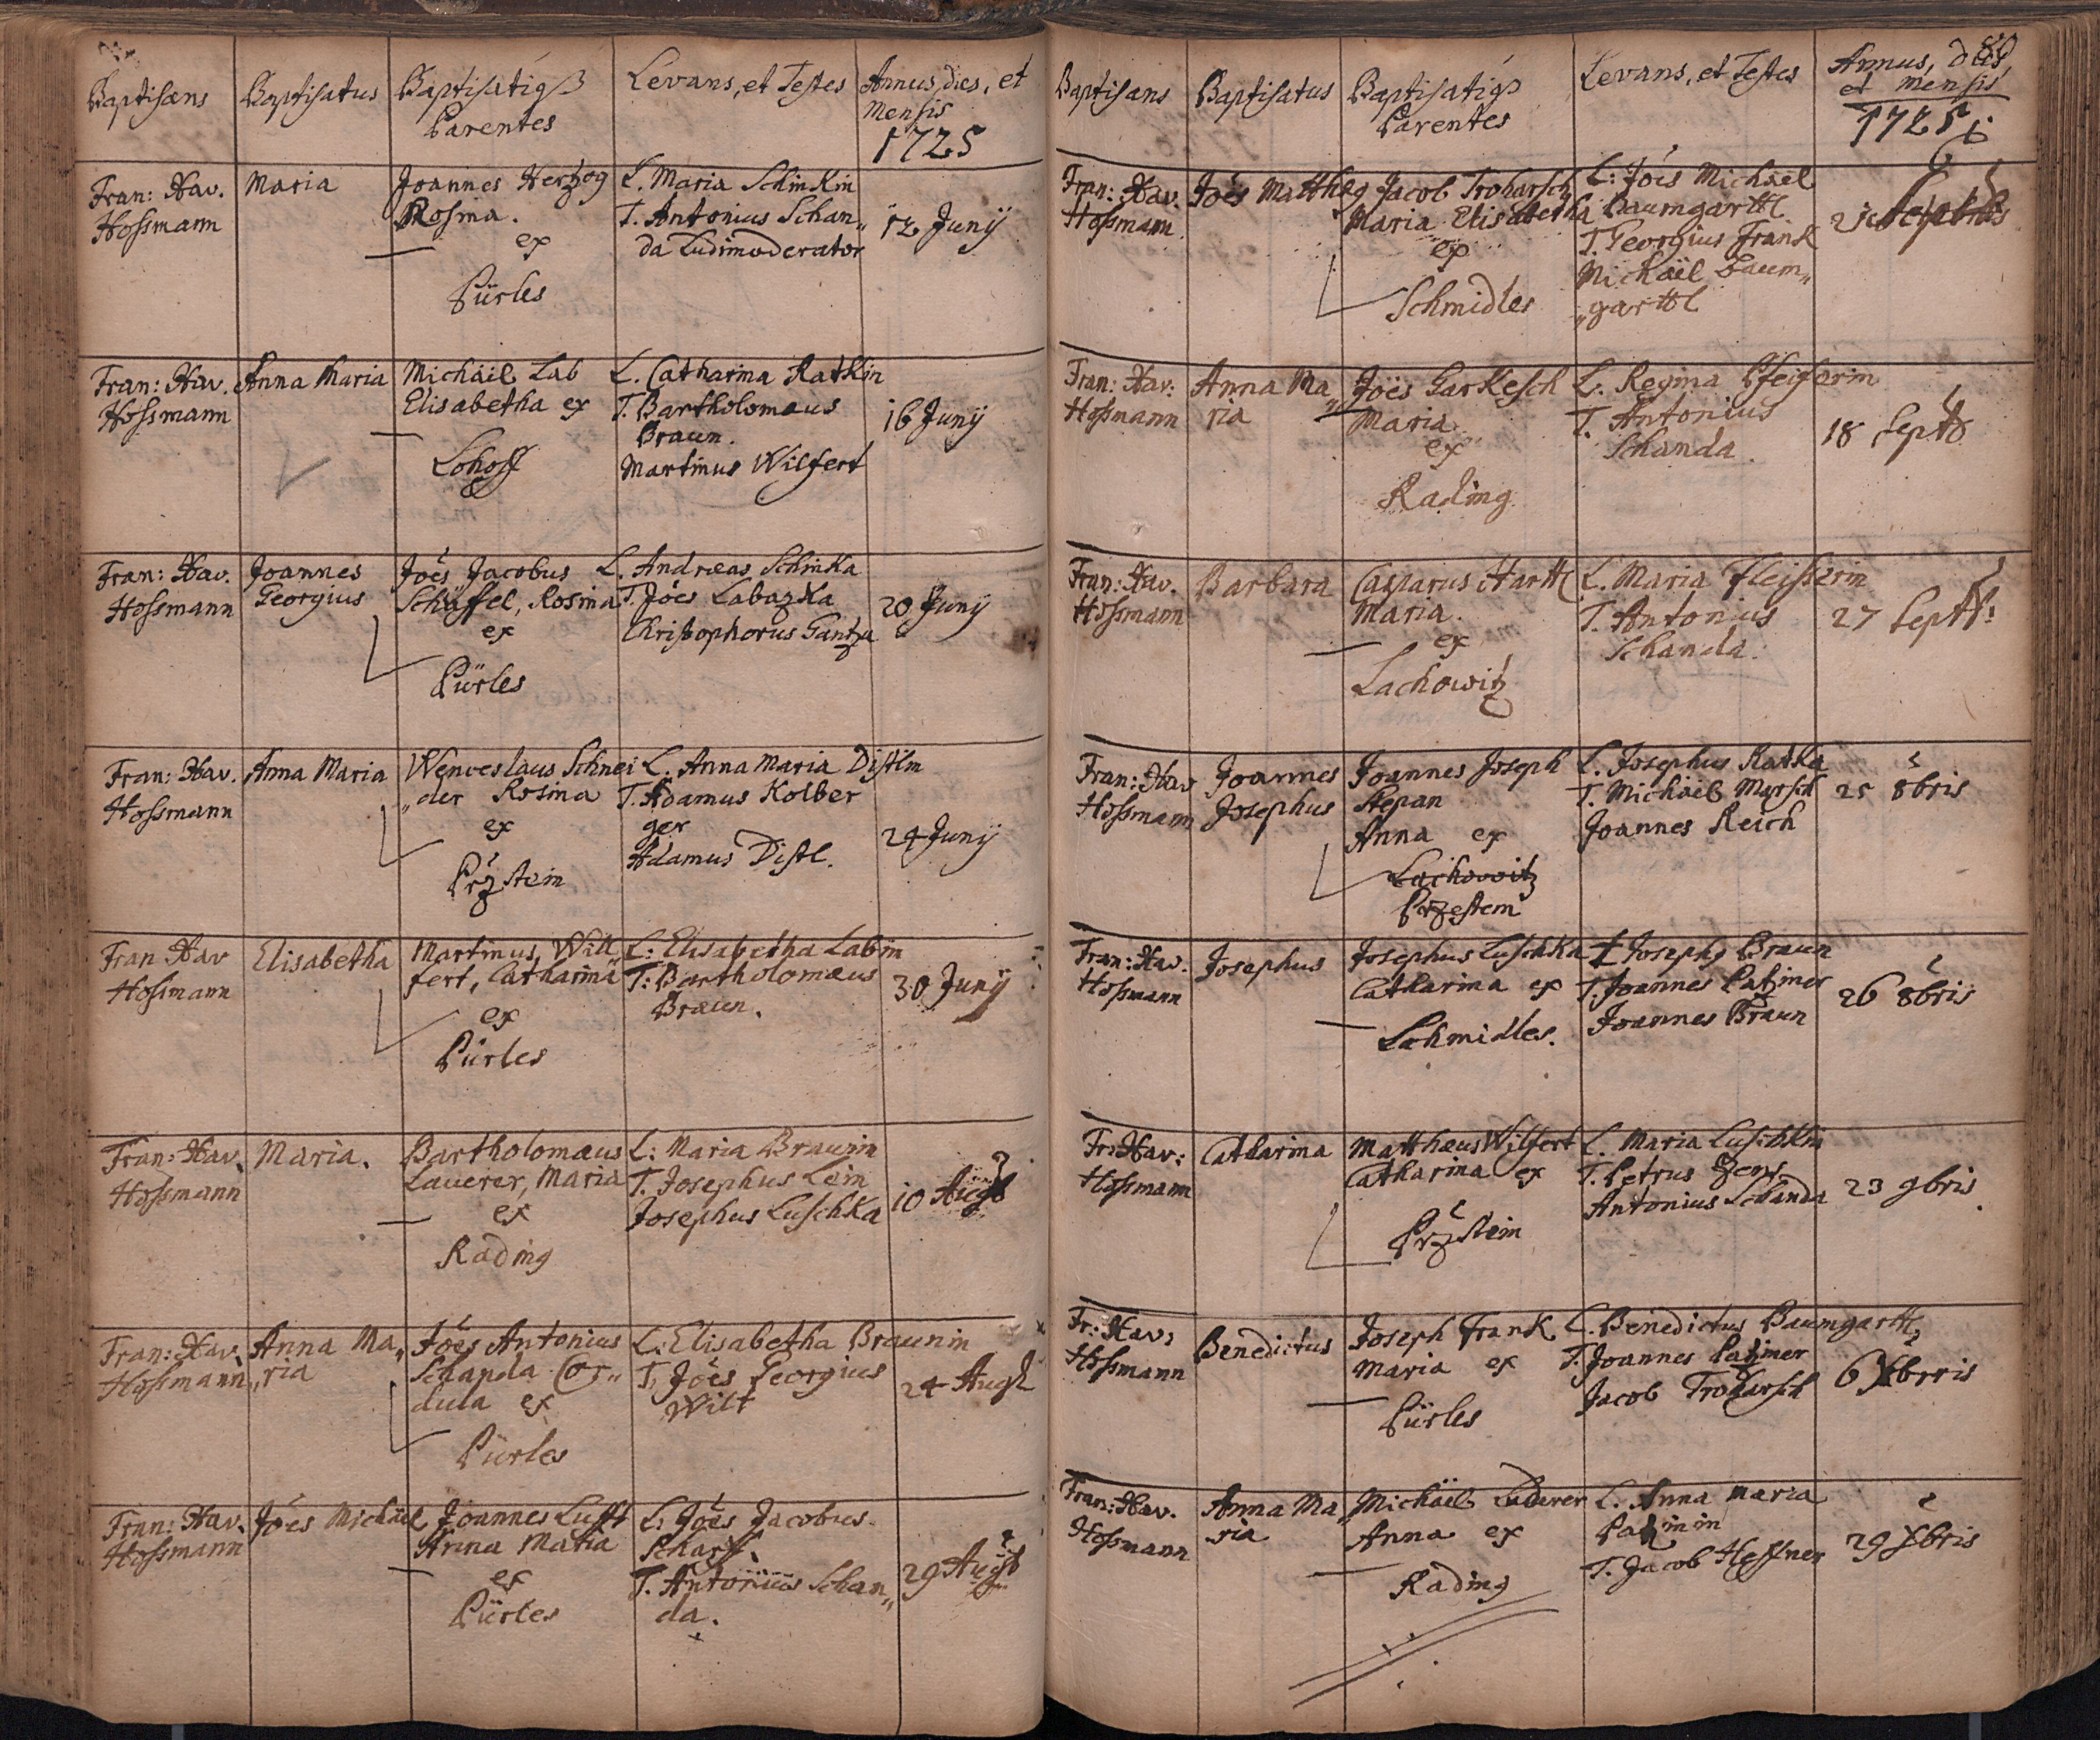 Baptisans
Baptisatus
Baptisatiqß
Parentes
Levans, et Testes
Annus, dies, et
Mensis
1725
Fran: Xav.
Hossmann
Maria
Joannes Hertzog
Rosina.
ex
Pürles
L. Maria Schinkin
T. Antonius Schan„
da Ludimoderator
12 Junÿ
Fran: Xav.
Hossmann
Anna Maria
Michäel Lab
Elisabetha ex
Lohoff
L. Catharina Ratkin
T. Bartholomæus
Braun.
Martinus Wilfert
16 Junÿ
Fran: Xav.
Hossmann
Joannes
Georgius
Jöes Jacobus
Schäffel, Rosina
ex
Pürles
L. Andræas Schinka
T. Jöes Labazka
Christophorus Gantza
20 Junÿ
Fran: Xav.
Hossmann
Anna Maria
Wenceslaus Schnei
„der Rosina
ex
Przstein
L. Anna Maria Distlin
T. Adamus Kolber
ger
Adamus Distl.
24 Junÿ
Fran Xav
Hossmann
Elisabetha
Martinus, Will
fert, Catharina
ex
Pürles
L: Elisabetha Labin
T: Bartholomæus
Braun.
30 Junÿ
Fran: Xav.
Hossmann
Maria.
Bartholomæus
Lauerer, Maria
ex
Rading
L: Maria Braunin
T. Josephus Lein
Josephus Luschka
10 Aug
Fran: Xav.
Hossmann
Anna Ma„
„ria
Jöes Antonius
Schanda Cor„
dula ex
Pürles
L: Elisabetha Braunin
T. Jöes Georgius
Wilt
24 Aug
Fran: Xav.
Hossmann
Jöes Michäel
Joannes Lufft
Anna Maria
ex
Pürles
L: Jöes Jacobus
Scharff.
T. Antonius Schan„
da.
29 Aug
Baptisans
Baptisatus
Baptisatiqß
Parentes
Levans, et Testes
Annus, dies
et mensis
1725
Fran: Xav.
Hossmann
Jöes Matthæq
Jacob Troharsch
Maria Elisabetha
ex
Schmidles
L: Jöes Michäel
Baumgarttl.
T. Georgius Frank
Michäel Baum„
„garttl
Fran: Xav:
Hossmann
Anna Ma„
ria
Jöes Garkesch
Maria
ex
Rading
L. Regina Pfeiferin
T. Antonius
Schanda.
18 Sept
Fran: Xav.
Hossmann
Barbara
Casparus Harttl
Maria.
ex
Lachowitz
L. Maria Fleisserin
T. Antonius
Schanda.
27 Sept
Fran: Xav
Hossmann
Joannes
Josephus
Joannes Joseph
Stepan
Anna ex
Lachowitz
Przestein
L. Josephus Ratka
T. Michäel Marsch
Joannes Reich
25 8bris
Fran: Xav.
Hossmann
Josephus
Josephus Luschka
Catharina ex
Schmidles.
L Josephq Braun
T. Joannes Patzner
Joannes Braun
26 8bris
Fr: Xav:
Hossmann
Catharina
Matthæus Wilfert
Catharina ex
Przstein
L. Maria Luschkin
T. Petrus
Antonius Schanda
23 9bris.
Fr: Xav:
Hossmann
Benedictus
Joseph Frank
Maria ex
Pürles
L. Benedictus Baumgarttl,
T. Joannes Patzner
Jacob Troharsch
6 Xbris
Fran: Xav.
Hossmann
Anna Ma„
ria
Michäel Laderer
Anna ex
Rading
L. Anna Maria
T. Jacob Heffner
29 Xbris